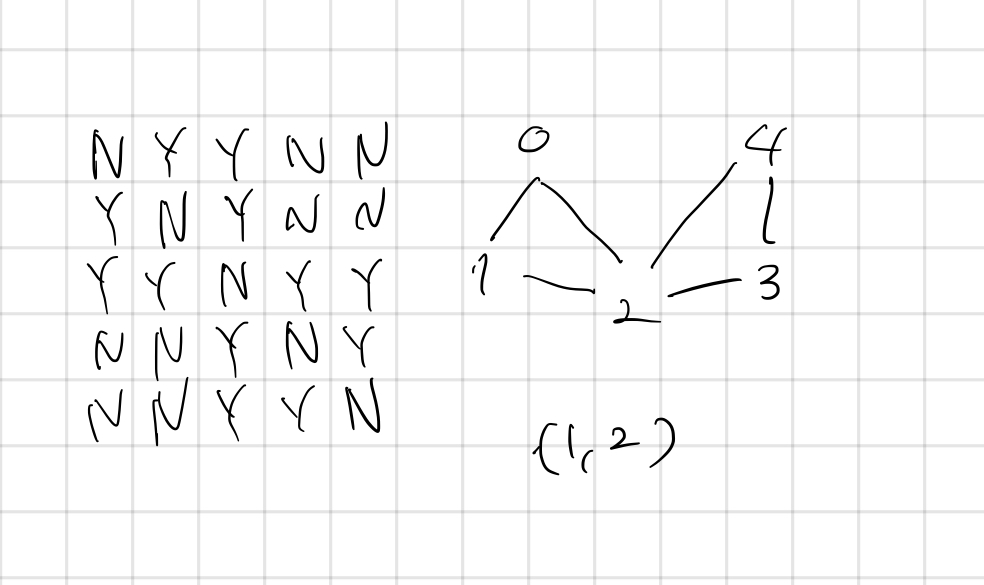 N Y Y N N
Y N Y N N
Y Y N Y Y
N N Y N Y
N N Y Y N
0 4
1 2 3
(1,2)